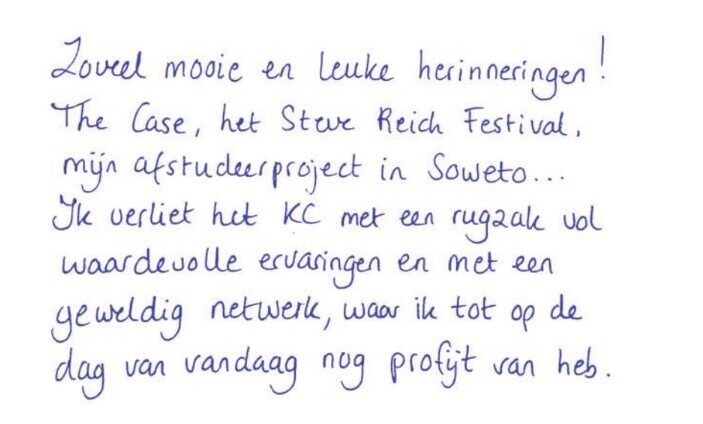 Zoveel mooie en leuke herinneringen!
The Case, het Steve Reich Festival,
mijn afstudeerproject in Soweto...
Ik verliet het KC met een rugzak vol
waardevolle ervaringen en met een
geweldig netwerk, waar ik tot op de
dag van vandaag nog profijt van heb.